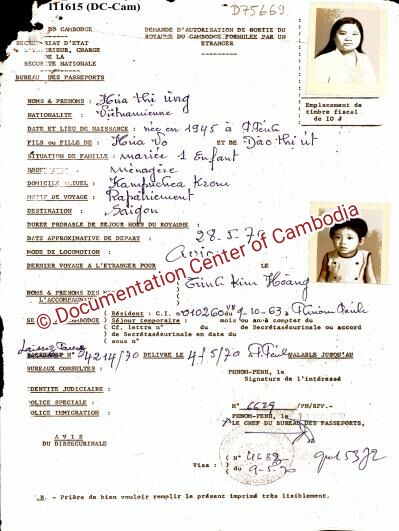 I11615 (DC-Cam)
D75669
DU CAMBODGE
DEMANDE D'AUTORISATION DE SORTIE DU
ROYAUME DU CAMBODGE FORMULEE PAR UN
ETRANGER
SECRETARIAT D'ETAT
L'INTERIEUR, CHARGE
DE LA
SECURITE NATIONALE
BUREAU DES PASSEPORTS
Emplacement de
timbre fiscal
de 10
NOMS & PRENOMS : Húa thi ùng
NATIONALITE : Vietnamienne
DATE ET LIEU DE NAISSANCE : née en 1945 à P.Penh
FILS ou FILLE DE : Húa Vo ET DE Dào thi út
SITUATION DE FAMILLE : mariée 1 enfant
ménagère
DOMICILE ACTUEL : Kampuchea Krom
MOTIF DE VOYAGE : Rapatriement
DESTINATION : Saigon
DUREE PROBABLE DE SEJOUR HORS DU ROYAUME :
DATE APPROXIMATIVE DE DEPART : 28-5-70
MODE DE LOCOMOTION : Avion
DERNIER VOYAGE A L'ETRANGER POUR LE
NOMS & PRENOMS DES Trinh Kim Hoàng
L'ACCOMPAGNANT
© Documentation Center of Cambodia
CAMBODGE
Résident : C.I. n° 010260 du 9-10-63 à Phnom Penh
Séjour temporaire : mois ou an à compter du
Cf. lettre n° du de Secrétaséurinale ou accord
de Secrétaséurinale en date du
sous n°
Laissez Passer
N° 4214/70 DELIVRE LE 4/5/70 P.Penh VALABLE JUSQU'AU
BUREAUX CONSULTES :
PHNOM-PENH, le
Signature de l'intéressé
IDENTITE JUDICIAIRE :
POLICE SPECIALE :
POLICE IMMIGRATION :
N° 6629 /PN/BPP.-
PHNOM-PENH, le
LE CHEF DU BUREAU DES PASSEPORTS,
AVIS
DU DIRSECURINALE
Visa :
N° 4682
du 9-5-70
B. - Prière de bien vouloir remplir le présent imprimé très lisiblement.